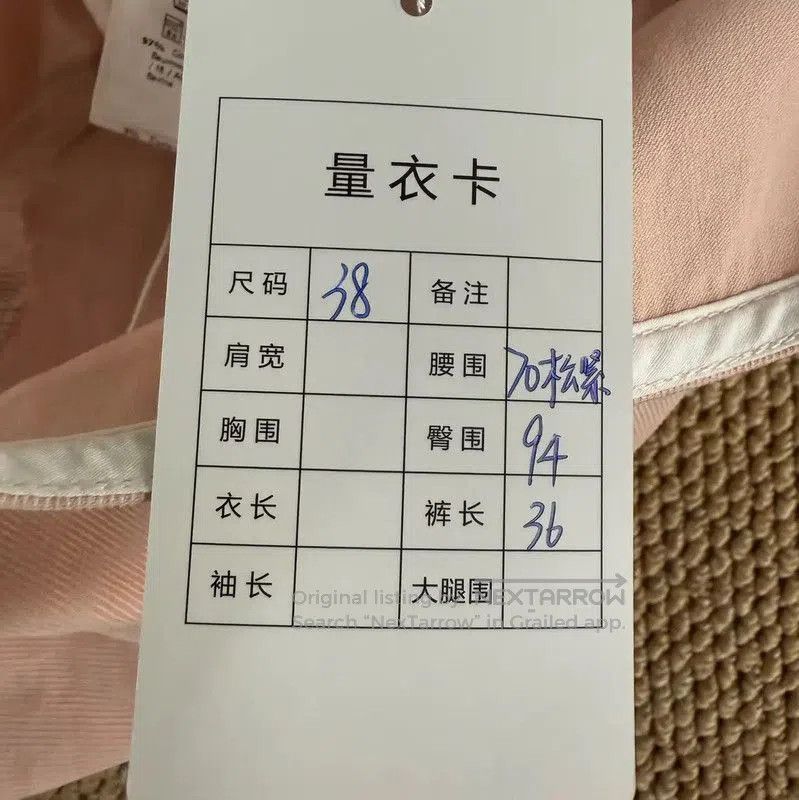 97%
量衣卡
尺码 38 备注
肩宽 腰围 70松紧
胸围 臀围 94
衣长 裤长 36
袖长 大腿围
Original listing by NEXTARROW
Search "NexTarrow" in Grailed app.